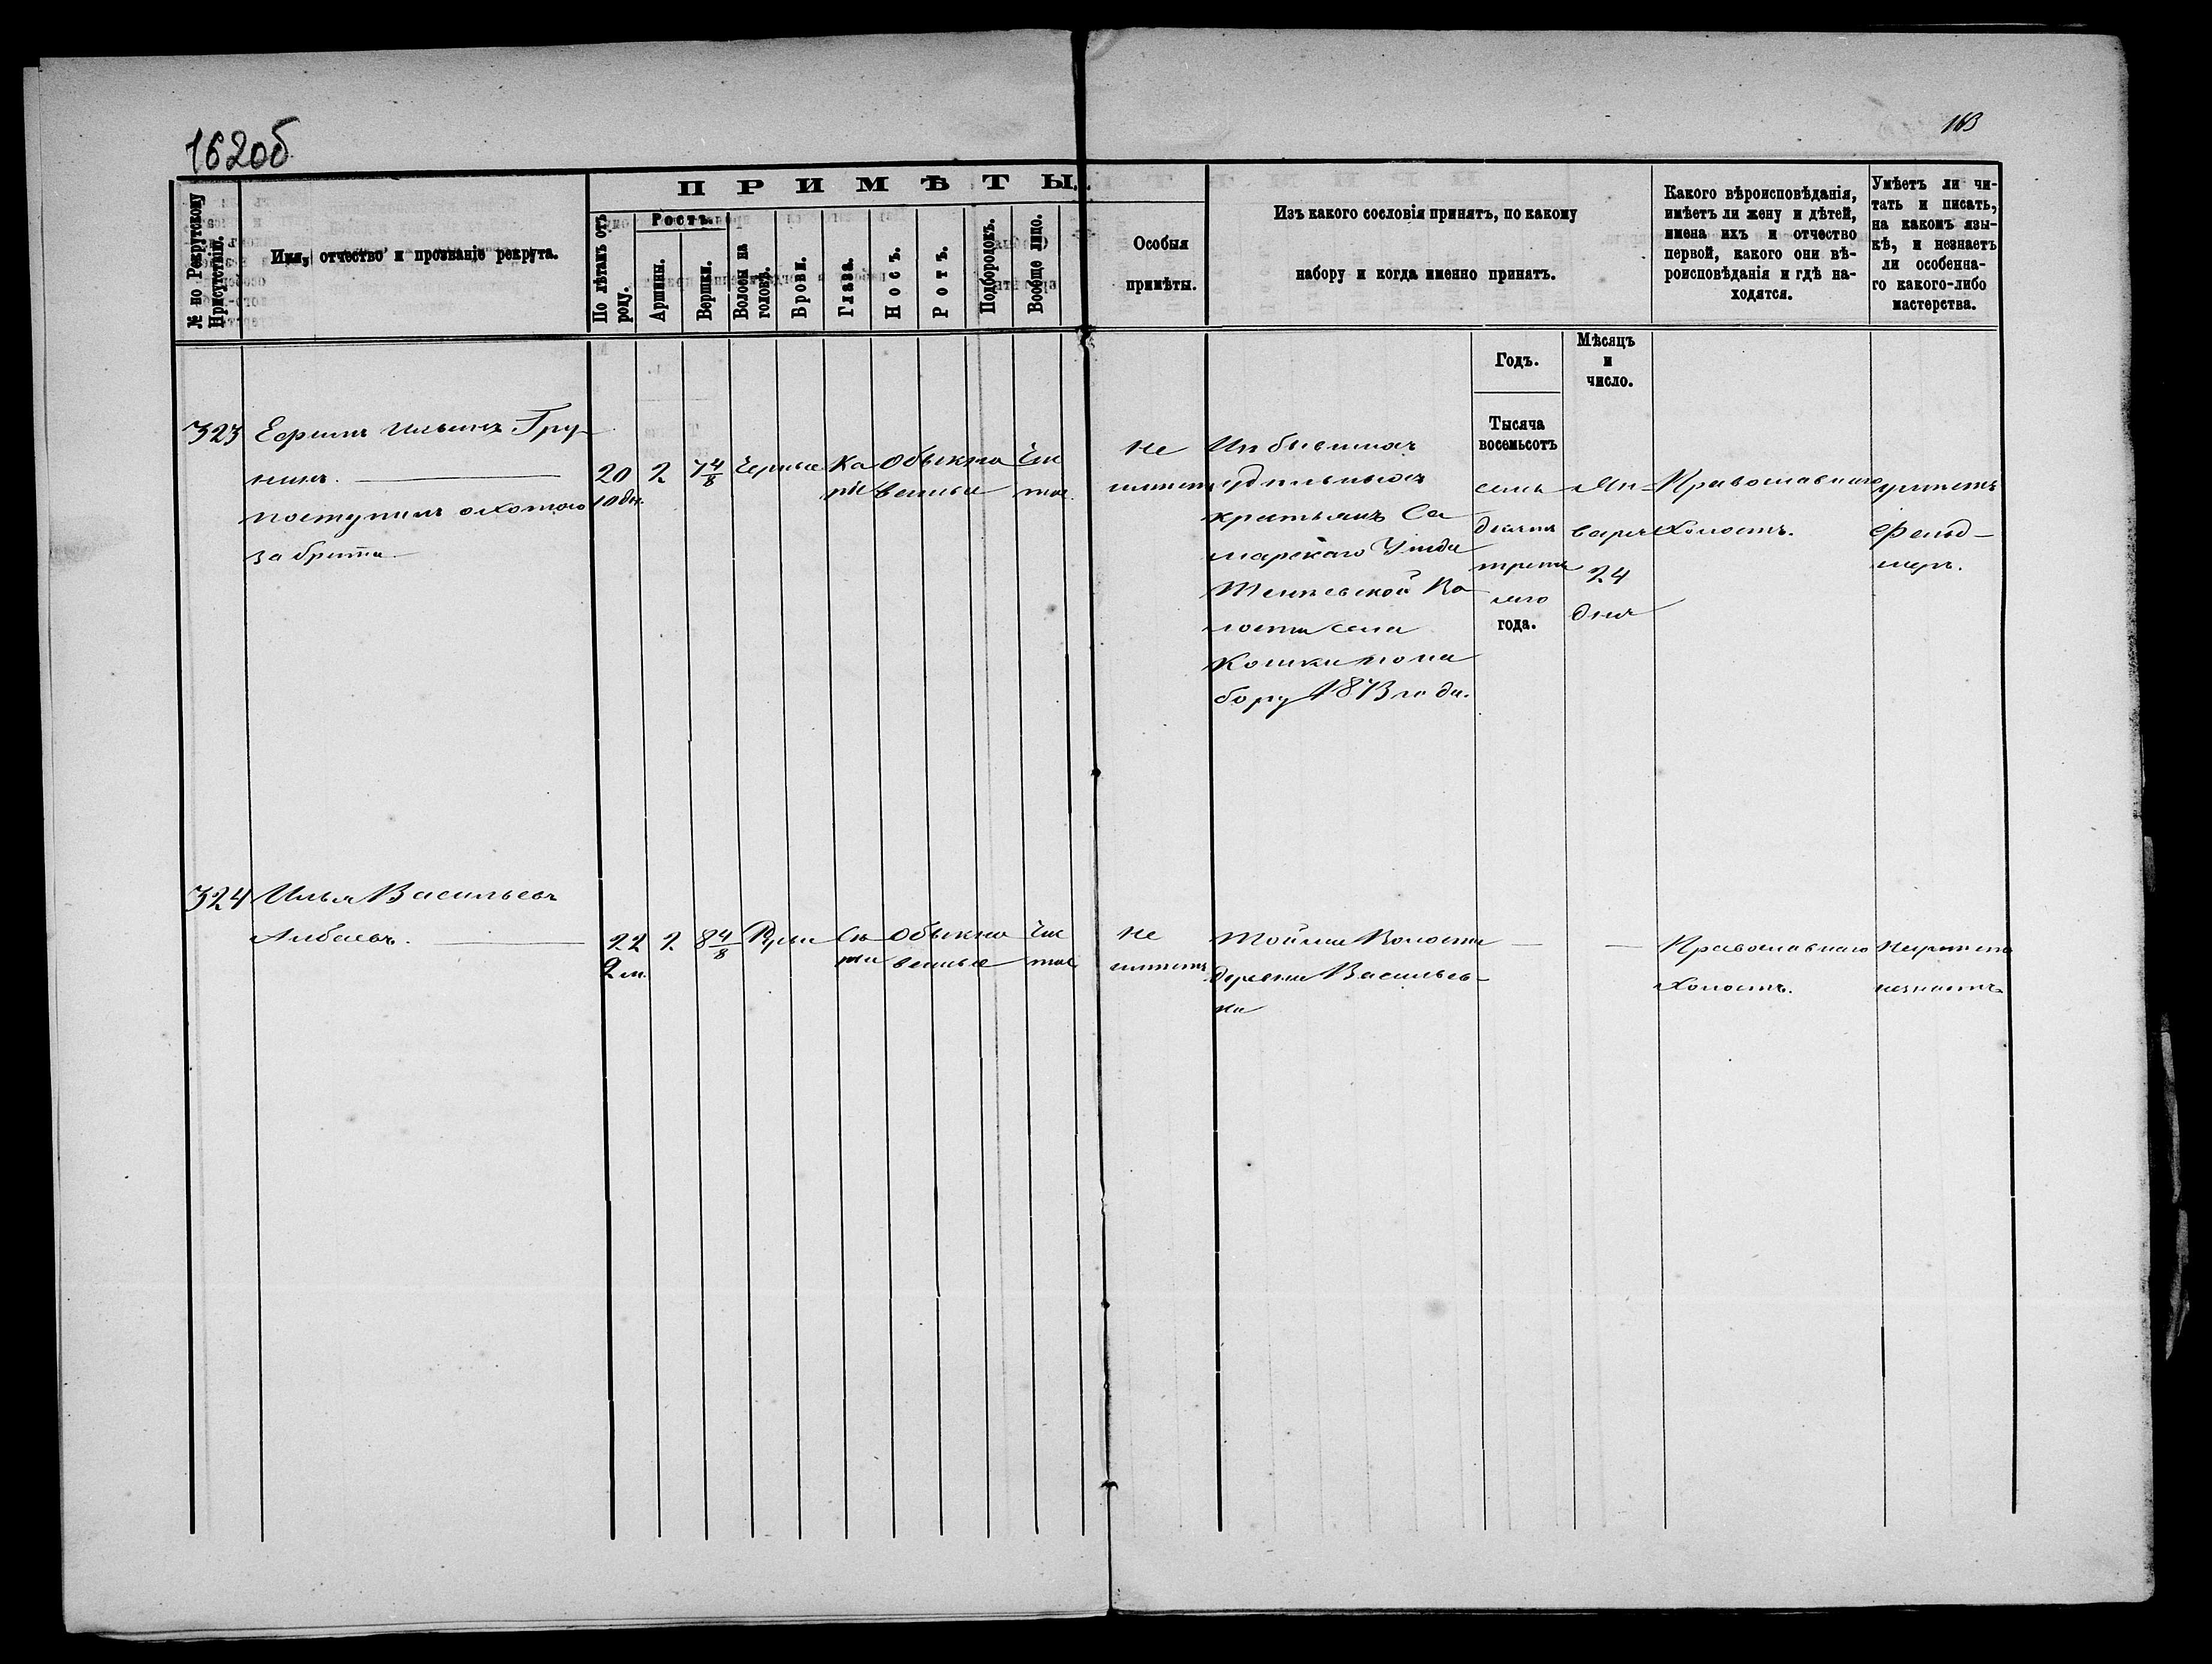 162об
163
№ по Рекрутскому Присутствію.
Имя, отчество и прозваніе рекрута.
ПРИМѢТЫ.
По лѣтамъ отъ роду.
Ростъ.
Аршины.
Вершки.
Волосы на головѣ.
Брови.
Глаза.
Носъ.
Ротъ.
Подбородокъ.
Вообще лицо.
Особыя
примѣты.
Изъ какого сословія принятъ, по какому
набору и когда именно принятъ.
Какого вѣроисповѣданія,
имѣетъ ли жену и дѣтей,
имена ихъ и отчество
первой, какого они вѣ-
роисповѣданія и гдѣ на-
ходятся.
Умѣетъ ли чи-
тать и писать,
на какомъ язы-
кѣ, и незнаетъ
ли особенна-
го какого-либо
мастерства.
Годъ.
Мѣсяцъ
и
число.
Тысяча
восемьсотъ
323
Ефимъ Ильинъ Гру-
нинъ.
поступилъ охотою
за брата
20
10 дн.
2
7 4/8
Черные
Ка
ріе
Обыкно
венные
Чис
тое
Не
имѣетъ
Изъ бывшихъ
удѣльныхъ
крестьянъ Са
марскаго Уѣзда
Во
лости села
Кошки по на
бору 1873 года.
семь
десятъ
треть
яго
года.
Ян-
варя
24
дня
Православнаго
холостъ.
умѣетъ
Фельд-
шеръ.
324
Илья Васильевъ
Албаевъ.
22
2 м.
2
8 4/8
Русые
Сѣ
рые
Обыкно
венные
Чис
тое
Не
имѣетъ
Той же Волости
деревни Васильев-
ки
Православнаго
холостъ.
Неумѣетъ
незнаетъ